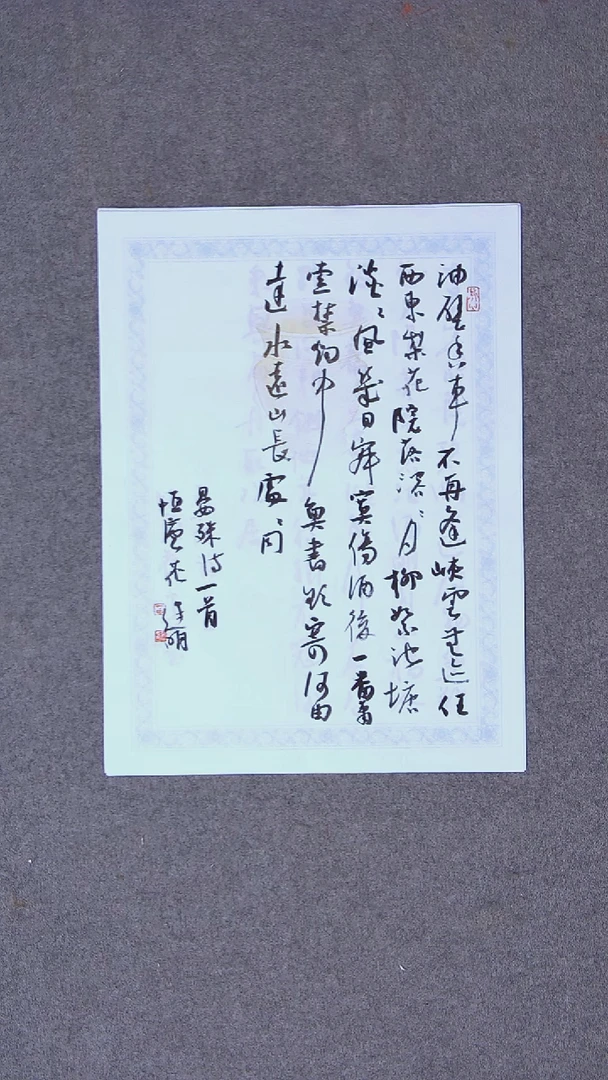 油壁香車不再逢峽雲無迹任
西東梨花院落溶〻月柳絮池塘
淡〻風幾日寂寞傷酒後一番蕭
索禁烟中魚書欲寄何由
達水遠山長處〻同
晏殊詩一首
恒廬